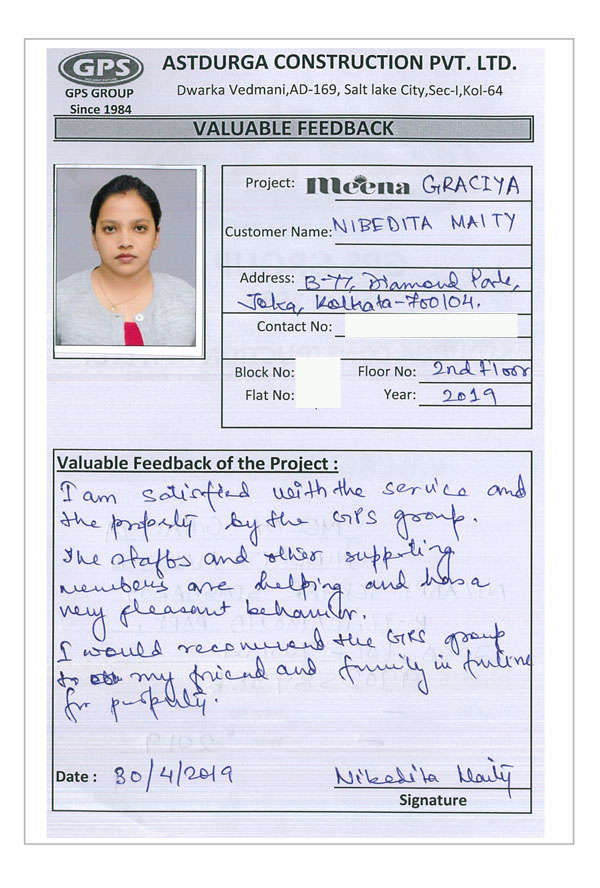 GPS
GPS GROUP
Since 1984
ASTDURGA CONSTRUCTION PVT. LTD.
Dwarka Vedmani,AD-169, Salt lake City,Sec-I,Kol-64
VALUABLE FEEDBACK
Project: meena GRACIYA
Customer Name: NIBEDITA MAITY
Address: B-77, Diamond Park,
Joka, Kolkata-700104.
Contact No:
Block No:
Floor No: 2nd Floor
Flat No:
Year: 2019
Valuable Feedback of the Project :
I am satisfied with the service and
the property by the GPS group.
The staffs and other supporting
members are helping and has a
very pleasant behavior.
I would recommend the GPS group
to my friend and family in future
for property.
Date : 30/4/2019
Nibedita Maity
Signature